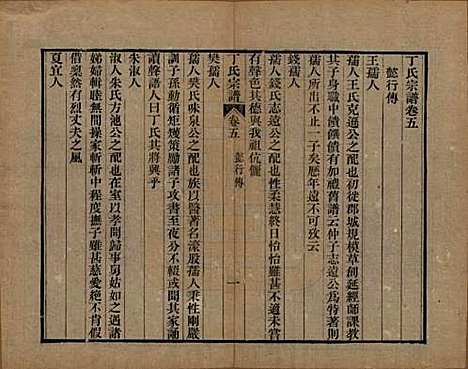 丁氏宗譜卷五
懿行傳
王孺人
孺人王氏克通公之配也初從郡城規模草創延經師課教
其子身職中饋饌饋有加禮舊譜云仲子志遠公為特著則
孺人所出不止一子矣歷年遠不可攷云
錢孺人
孺人錢氏志遠公之配也性柔慧終日怡怡雖未嘗
有聲色其德與我祖伉儷
丁氏宗譜
卷五
懿行傳
一
樊孺人
孺人樊氏味泉公之配也族以醫著名濠股孺人秉性剛嚴
訓子孫動循矩矱策勵諸子攻書至夜分不輟或聞其家誦
讀聲語人曰丁氏其將興乎
朱淑人
淑人朱氏方池公之配也在室以孝聞歸事舅姑如之遇諸
娣婦輯睦無間操家斬斬中程度撫子雖甚慈愛絕不肯假
借㮣然有烈丈夫之風
夏宜人